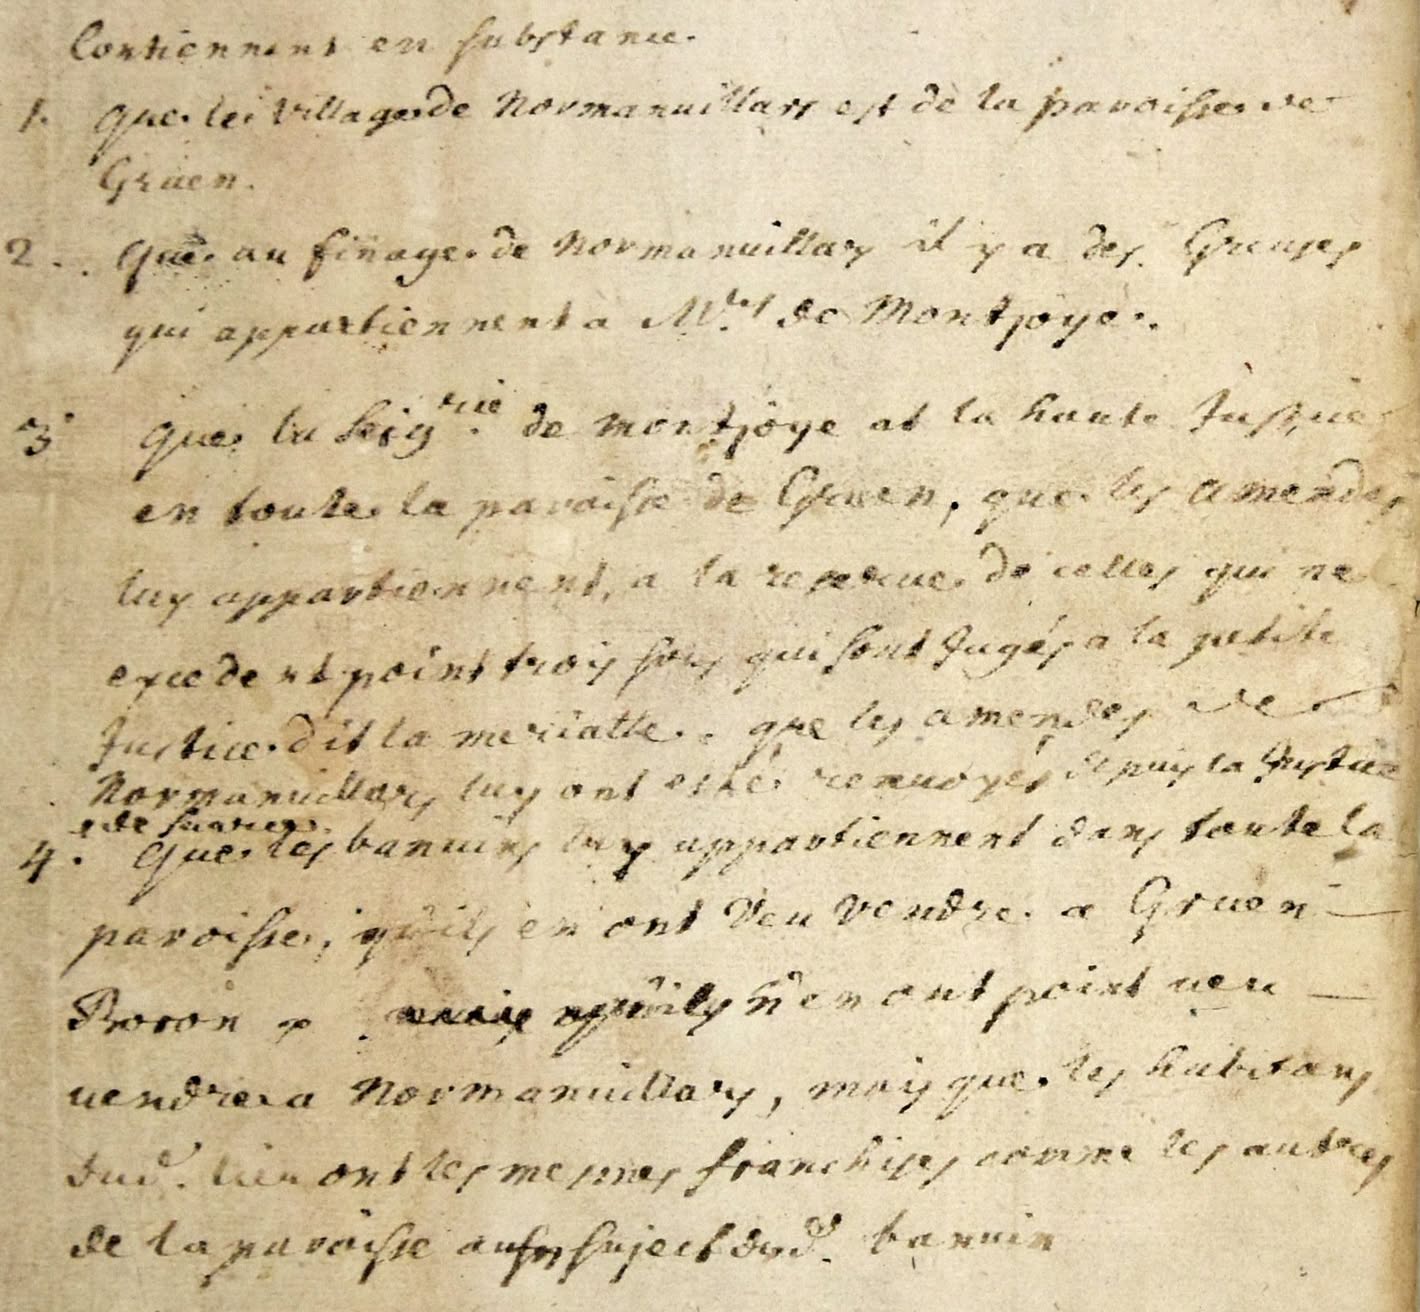 Contiennent en substance.
1. Que le Village de Normanuillars est de la paroisse de
Gruen.
2. Que au finage de Normanuillars il y a des Creuses
qui appartiennent a Mr de Montjoye.
3 Que la Seigrie de montjoye at la haute Justice
en toute la paroisse de Gruen, que les amendes
luy appartiennent, a la reserue de celles qui ne
excedent point trois sols qui sont Jugés a la petite
Justice dit la meriatte. que les amendes de
Normanuillars luy ont esté renuoyés depuis la Justice
de
4. Que les banuins luy appartiennent dans toute la
paroisse, qu'ils en ont veu vendre a Gruen
Boron qu'ils n'en ont point ueu
uendre a Normanuillars, mais que les habitans
dud. lieu ont les mesmes franchises comme les autres
de la paroisse aussy sujects dud. banuin